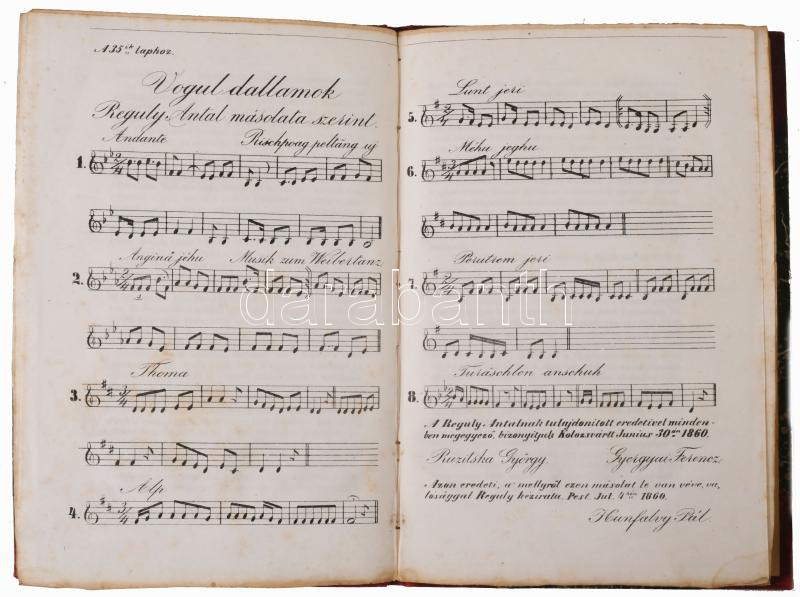 A 35ik laphoz.
Vogul dallamok
Reguly Antal másolata szerint.
Andante Püschpoag peltäng uj
1.
Anginá jéhu Musik zum Weibertanz
2.
Thoma
3.
Alp
4.
Lunt jeri
5.
Méhu jeghu
6.
Perutrem jeri
7.
Turáschlen anschuh
8.
A Reguly Antalnak tulajdonitott eredetivel minden-
ben megegyező, bizonyitjuk Kolozsvártt Junius 30án 1860.
Ruzitska György Gyergyai Ferencz
Azon eredeti, a mellyről ezen másolat le van véve, va-
lósággal Reguly kézirata. Pest. Jul. 4kén 1860.
Hunfalvy Pál.
darabanth